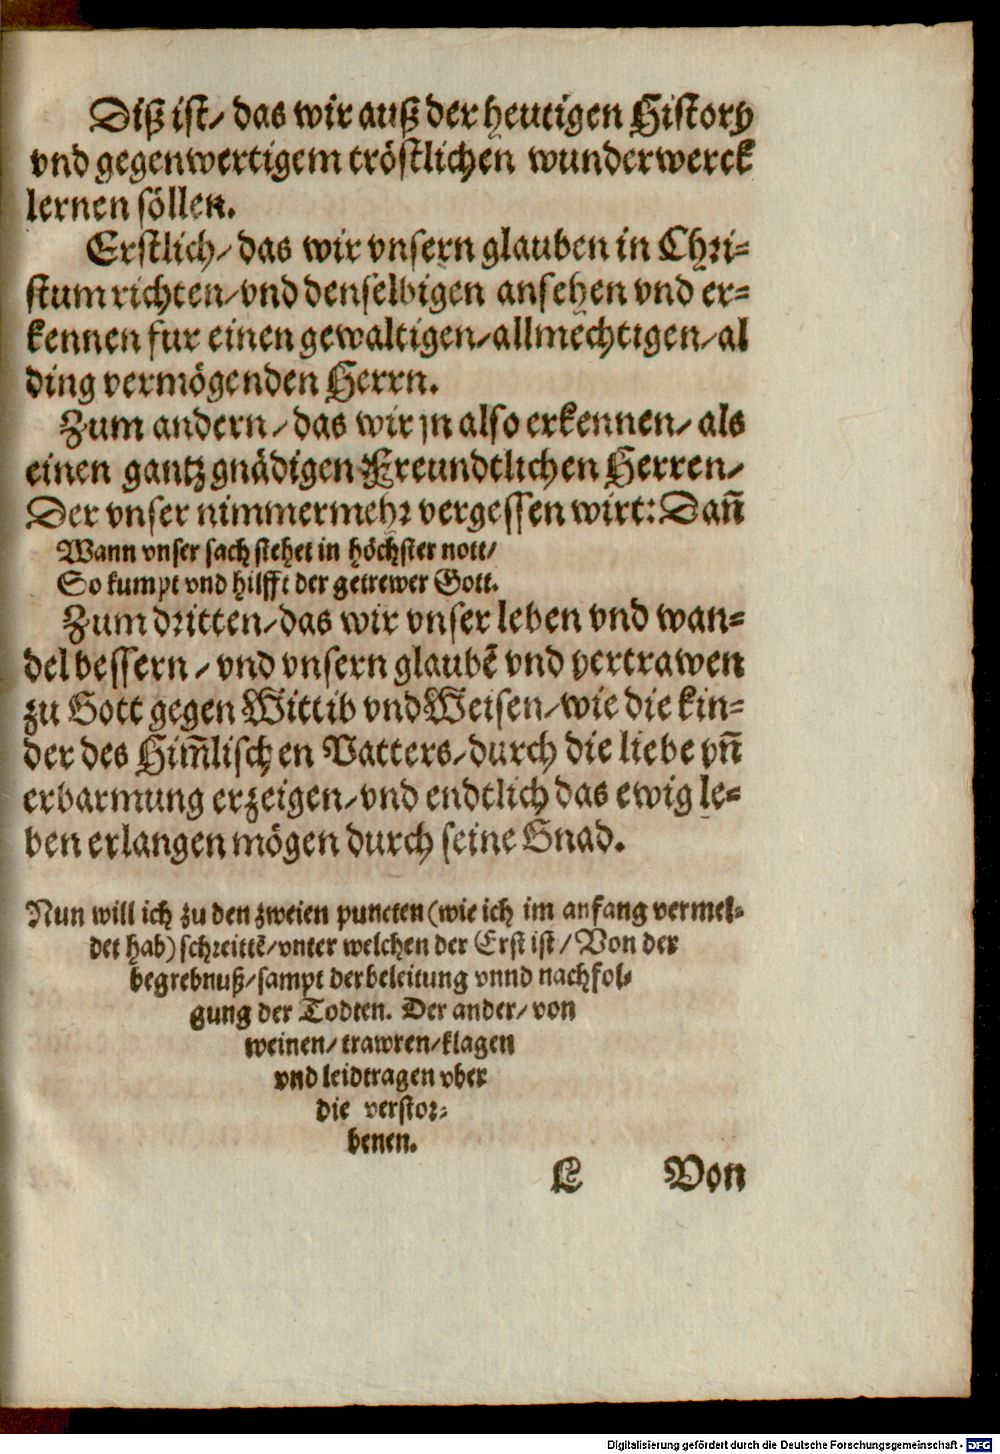 Diß ist/ das wir auß der heutigen History
vnd gegenwertigem tröstlichen wunderwerck
lernen söllen.
Erstlich/ das wir vnsern glauben in Chri-
stum richten/ vnd denselbigen ansehen vnd er-
kennen fur einen gewaltigen/ allmechtigen/ al
ding vermögenden Herrn.
Zum andern/ das wir jn also erkennen/ als
einen gantz gnädigen Freundtlichen Herren/
Der vnser nimmermehr vergessen wirt: Dañ
Wann vnser sach stehet in höchster nott/
So kumpt vnd hilfft der getrewer Gott.
Zum dritten/ das wir vnser leben vnd wan-
del bessern/ vnd vnsern glaubẽ vnd vertrawen
zu Gott gegen Wittib vnd Weisen/ wie die kin-
der des Him̃lischen Vatters/ durch die liebe vñ
erbarmung erzeigen/ vnd endtlich das ewig le-
ben erlangen mögen durch seine Gnad.
Nun will ich zu den zweien puncten (wie ich im anfang vermel-
det hab) schreittẽ/ vnter welchen der Erst ist/ Von der
begrebnuß/ sampt der beleitung vnnd nachfol-
gung der Todten. Der ander/ von
weinen/ trawren/ klagen
vnd leidtragen vber
die verstor-
benen.
L Von
Digitalisierung gefördert durch die Deutsche Forschungsgemeinschaft - DFG